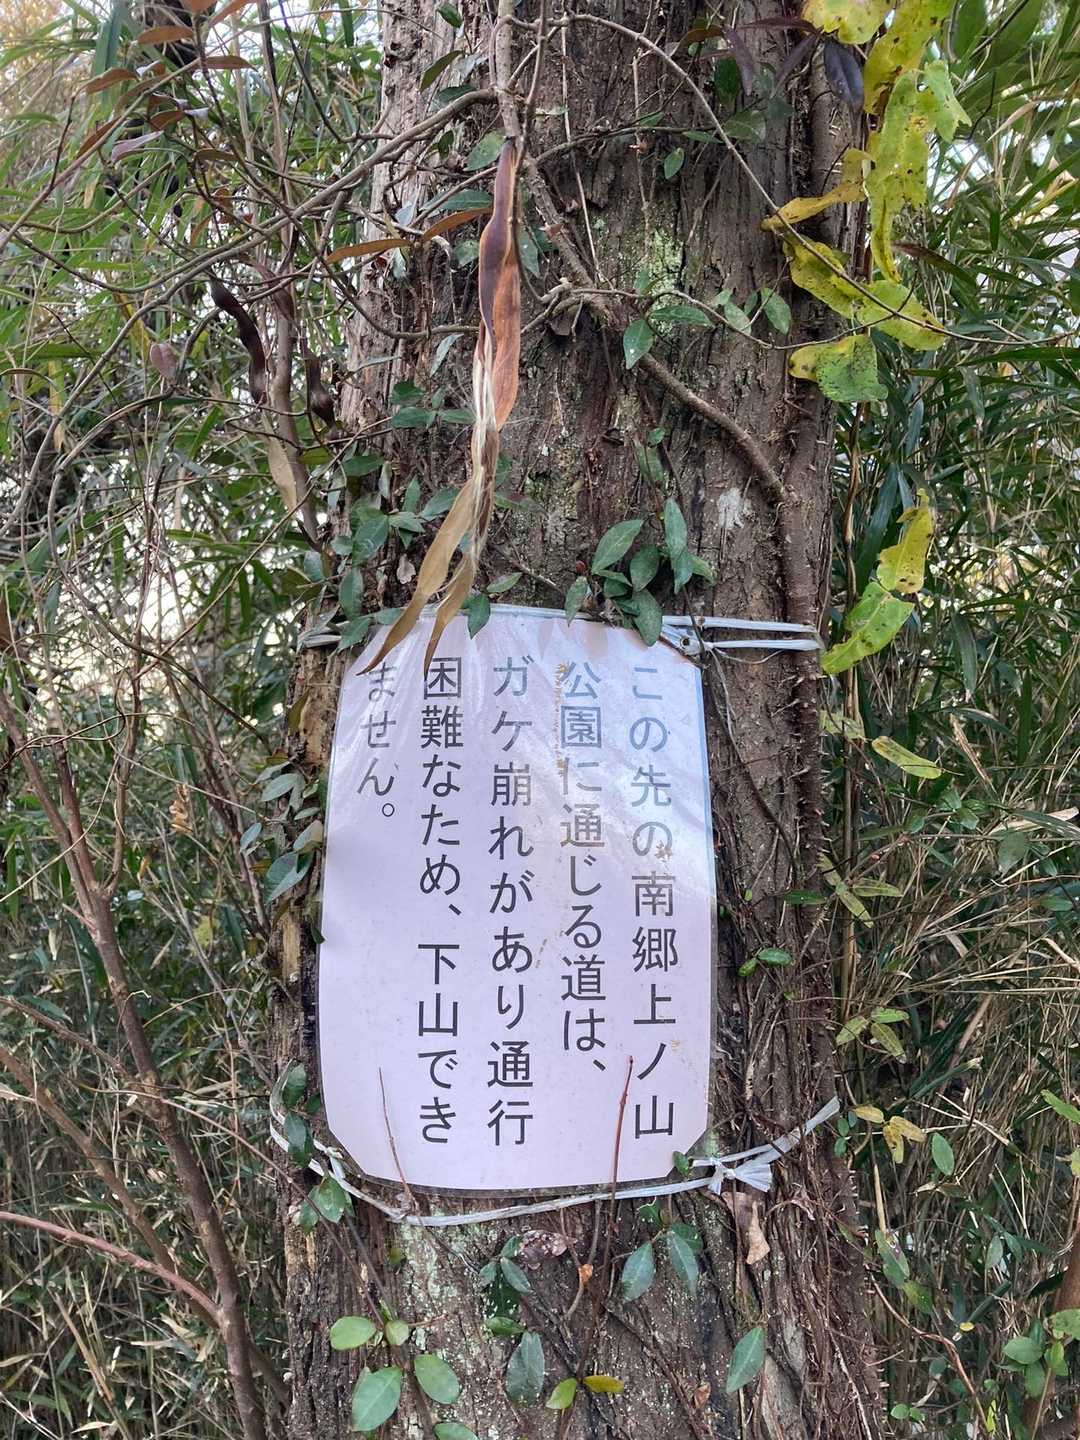 この先の南郷上ノ山
公園に通じる道は、
ガケ崩れがあり通行
困難なため、下山でき
ません。